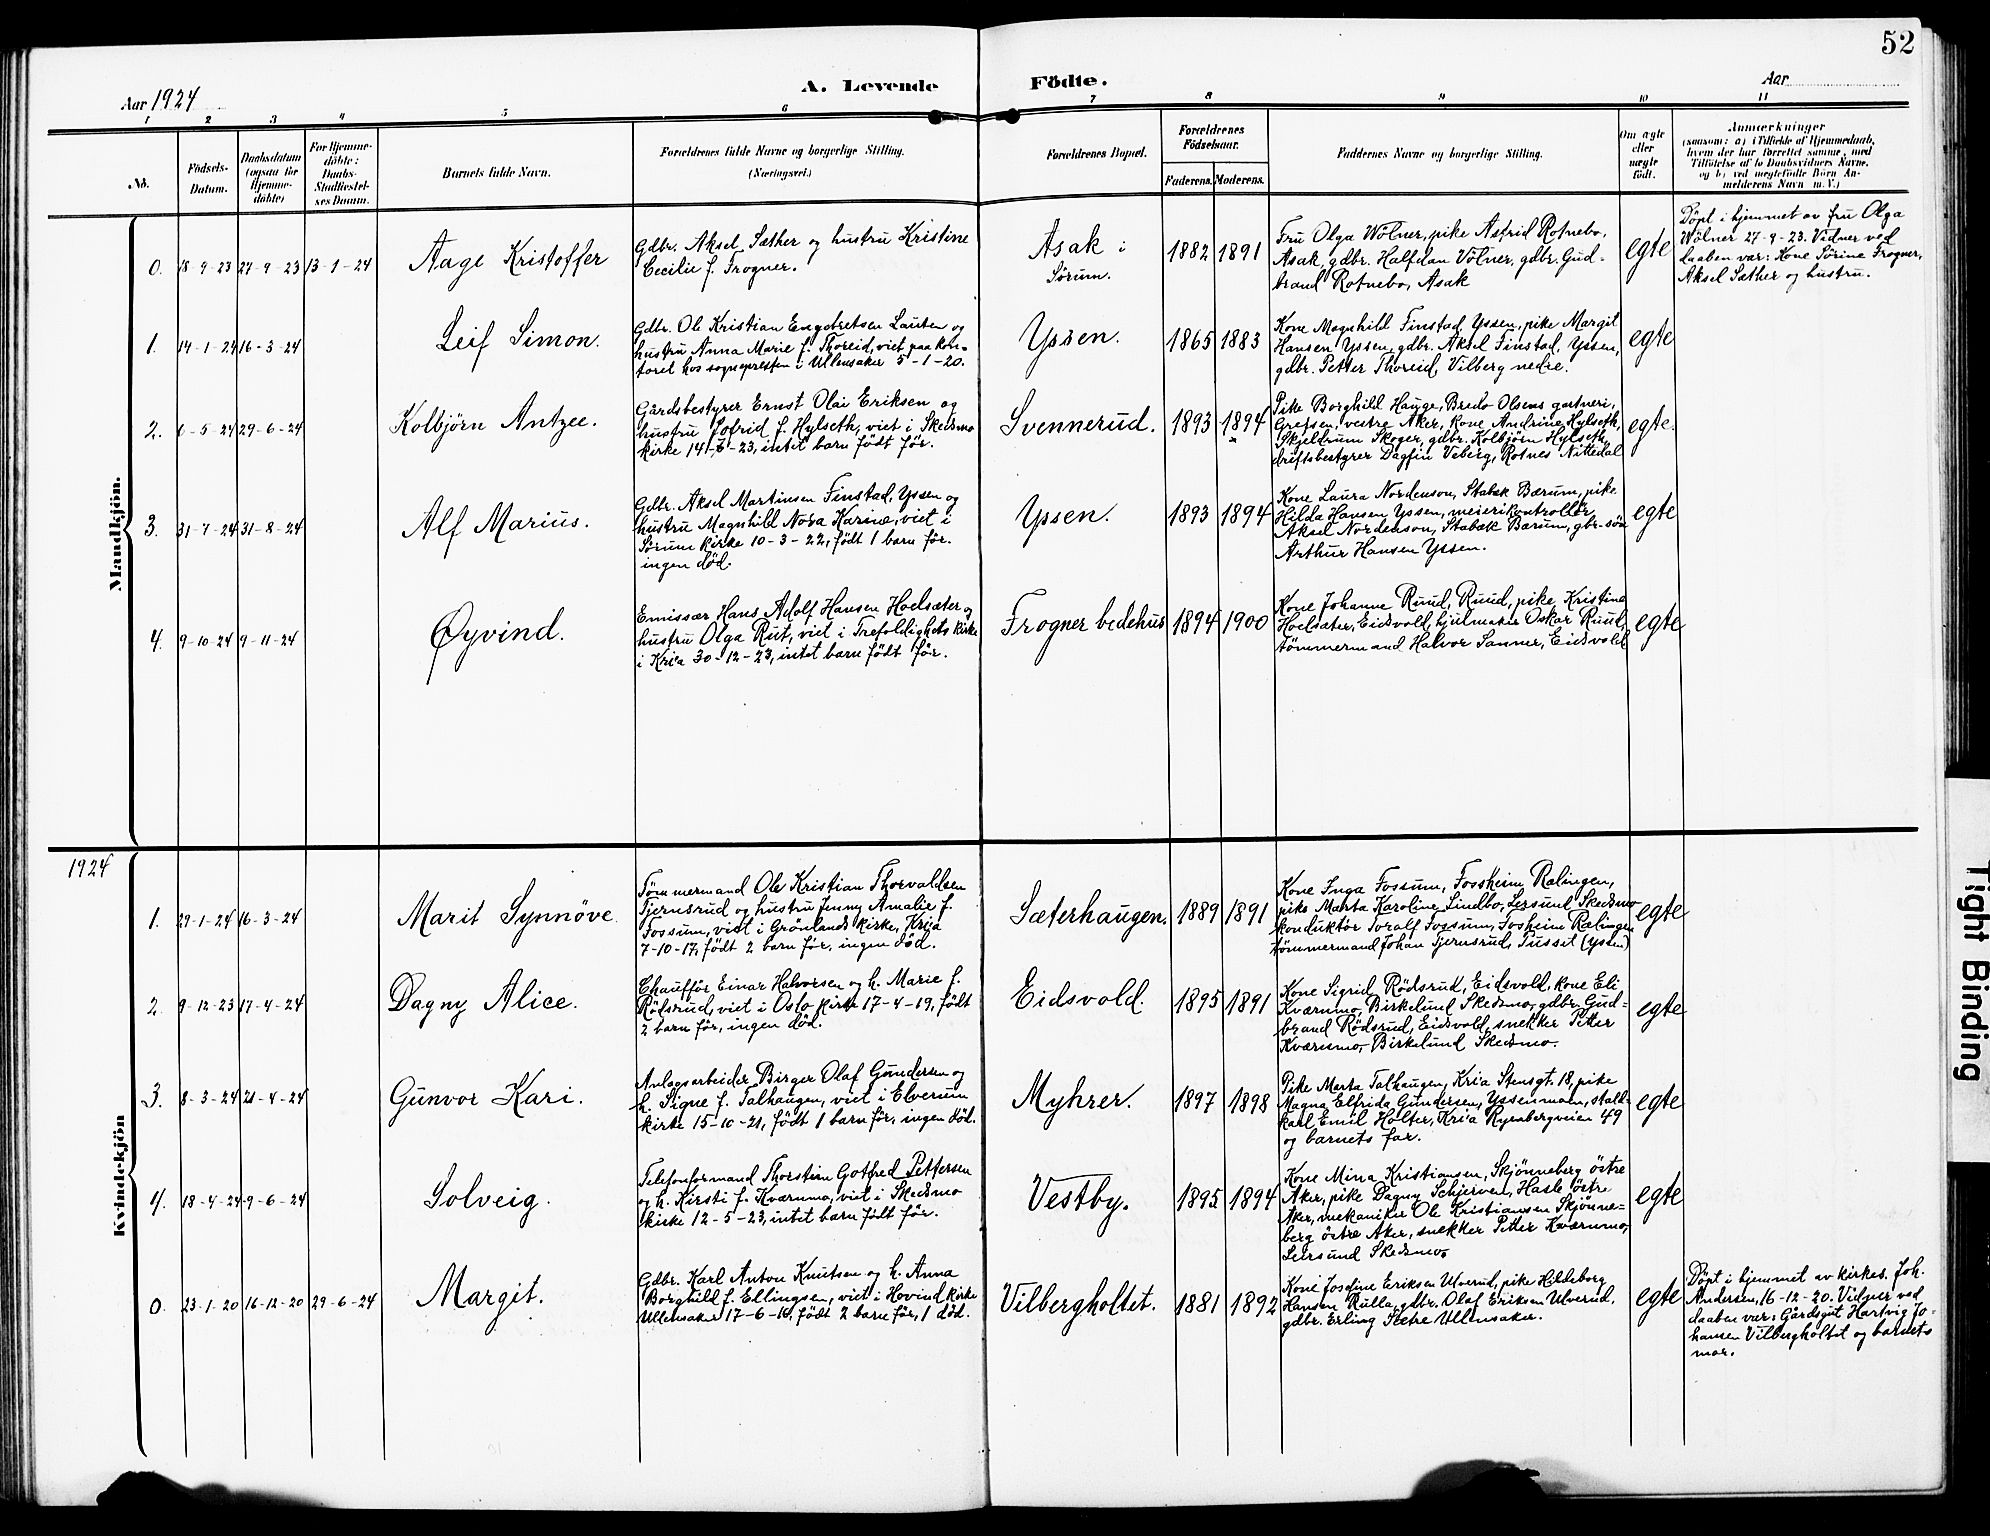 52
A. Levende Födte.
Aar 1924
Aar
1 2 3 4 5 6 7 8 9 10 11
No.
Födsels-
Datum.
Daabsdatum
(ogsaa for
Hjemme-
döbte)
For Hjemme-
döbte:
Daabs-
Stadfæstel-
ses Datum.
Barnets fulde Navn.
Forældrenes fulde Navne og borgerlige Stilling.
(Næringsvei.)
Forældrenes Bopæl.
Forældrenes
Födselsaar.
Faderens. Moderens.
Faddernes Navne og borgerlige Stilling.
Om ægte
eller
uægte
födt.
Anmærkninger
(saasom: a) i Tilfælde af Hjemmedaab,
hvem der har forrettet samme, med
Tilföielse af to Daabsvidners Navne,
og b) ved uægtefödte Börn An-
melderens Navn m. V.)
Mandkjön.
0. 18-9-23 27-9-23 13-1-24
Aage Kristoffer
Gdbr. Aksel Sæther og hustru Kristine
Cecilie f. Frogner.
Asak i
Sørum.
1882 1891
Fru Olga Wölner, pike Astrid Rotnebo,
Asak, gdbr. Halfdan Völner, gdbr. Gud-
brand Rotnebo, Asak
egte
Döpt i hjemmet av fru Olga
Wölner 27-9-23. Vidner ved
daaben var: Kone Sörine Frogner,
Aksel Sæther og hustru.
1. 14-1-24 16-3-24
Leif Simon.
Gdbr. Ole Kristian Engebretsen Lauten og
hustru Anna Marie f. Thoreid, viet paa kon-
toret hos sognepresten i Ullensaker 5-1-20.
Yssen.
1865 1883
Kone Magnhild Finstad, Yssen, pike Margit
Hansen Yssen, gdbr. Aksel Finstad, Yssen,
gdbr. Petter Thoreid, Vilberg nedre.
egte
2. 6-5-24 29-6-24
Kolbjörn Antzee.
Gårdsbestyrer Ernst Olai Eriksen og
hustru Lofrid f. Hylseth, viet i Skedsmo
kirke 14-7-23, intet barn födt för.
Svennerud.
1893 1894
Pike Borghild Hauge, Bredo Olsens gartneri,
Grefsen, vestre Aker, kone Andrine Hylseth,
Skjeltrum Skoger, gdbr. Kolbjörn Hylseth,
driftsbestyrer Dagfin Veberg, Rotnes Nittedal
egte.
3. 31-7-24 31-8-24
Alf Marius.
Gdbr. Aksel Martinsen Finstad, Yssen og
hustru Magnhild Nora Karine, viet i
Sørum kirke 10-3-22, födt 1 barn för.
ingen död.
Yssen.
1893 1894
Kone Laura Nordenson, Stabæk Bærum, pike
Hilda Hansen Yssen, meierikontrollör
Aksel Nordenson, Stabæk Bærum, gbr-sön
Arthur Hansen Yssen.
egte
4. 9-10-24 9-11-24
Øyvind.
Emissær Hans Adolf Hansen Hoelsæter og
hustru Olga Rut, viet i Trefoldighets kirke
i Kria 30-12-23, intet barn födt för.
Frogner bedehus
1894 1900
Kone Johanne Ruud, Ruud, pike Kristine
Hoelsæter, Eidsvold, hjulmaker Oskar Ruud,
tömmermand Halvor Sanner, Eidsvold
egte
1924
Kvindekjön
1. 29-1-24 16-3-24
Marit Synnöve
Tömmermand Ole Kristian Thorvaldsen
Tjernsrud og hustru Jenny Amalie f.
Fossum, viet i Grönlands kirke, Kria
7-10-17, födt 2 barn för, ingen död.
Sæterhaugen.
1889 1891
Kone Inga Fossum, Fossheim Rælingen,
pike Marta Karoline Lindbo, Lersund Skedsmo
konduktör Toralf Fossum, Fosheim Rælingen
tömmermand Johan Tjernsrud, Tussit (Yssen)
egte
2. 9-12-23 17-4-24
Dagny Alice.
Chaufför Einar Halvorsen og h. Marie f.
Rödsrud, viet i Oslo kirke 17-4-19, födt
2 barn för, ingen död.
Eidsvold.
1895 1891
Kone Sigrid Rödsrud, Eidsvold, kone Eli
Kværnmo, Birkelund Skedsmo, gdbr. Gud-
brand Rödsrud, Eidsvold, snekker Petter
Kværnmo, Birkelund Skedsmo.
egte
3. 8-3-24 21-4-24
Gunvor Kari.
Anlægsarbeider Birger Olaf Gundersen og
h. Signe f. Talhaugen, viet i Elverum
kirke 15-10-21, födt 1 barn för, ingen död.
Myhrer.
1897 1898
Pike Marta Talhaugen, Kria Stensgt. 18, pike
Magna Elfrida Gundersen, Yssenmoen, stall-
karl Emil Holter, Kria Ryenbergveien 49
og barnets far.
egte
4. 18-4-24 9-6-24
Solveig.
Telefonformand Thorstein Gotfred Pettersen
og h. Kirsti f. Kværnmo, viet i Skedsmo
kirke 12-5-23, intet barn födt för.
Vestby.
1895 1894
Kone Mina Kristiansen, Skjönneberg östre
Aker, pike Dagny Schjerven, Hasle östre
Aker, mekaniker Ole Kristiansen Skjönne-
berg östre Aker, snekker Petter Kværnmo,
Leirsund Skedsmo.
egte
0. 23-1-20 16-12-20 29-6-24
Margit.
Gdbr. Karl Anton Knutsen og h. Anna
Borghild f. Ellingsen, viet i Hovind kirke
Ullensaker 17-6-16, födt 2 barn för, 1 död.
Vilbergholtet.
1881 1892
Kone Josefine Eriksen Ulverud, pike Hildeborg
Hansen Rulla, gdbr. Olaf Eriksen Ulverud,
gdbr. Erling Sætre Ullensaker.
egte
Döpt i hjemmet av kirkes. Joh.
Andersen, 16-12-20. Vidner ved
daaben var: Gårdsgut Hartvig Jo-
hansen Vilbergholtet og barnets
mor.
Tight Binding